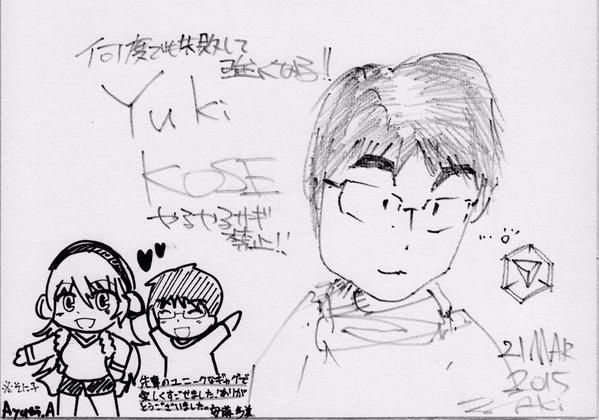 何度でも失敗して
強くなる!!
Yuki
KOSE
やるやるサギ
禁止!!
※そに子
Ayumi.A
先輩のユニークなギャグで
楽しくすごせました!ありが
とうございました。
21 MAR
2015
Aki